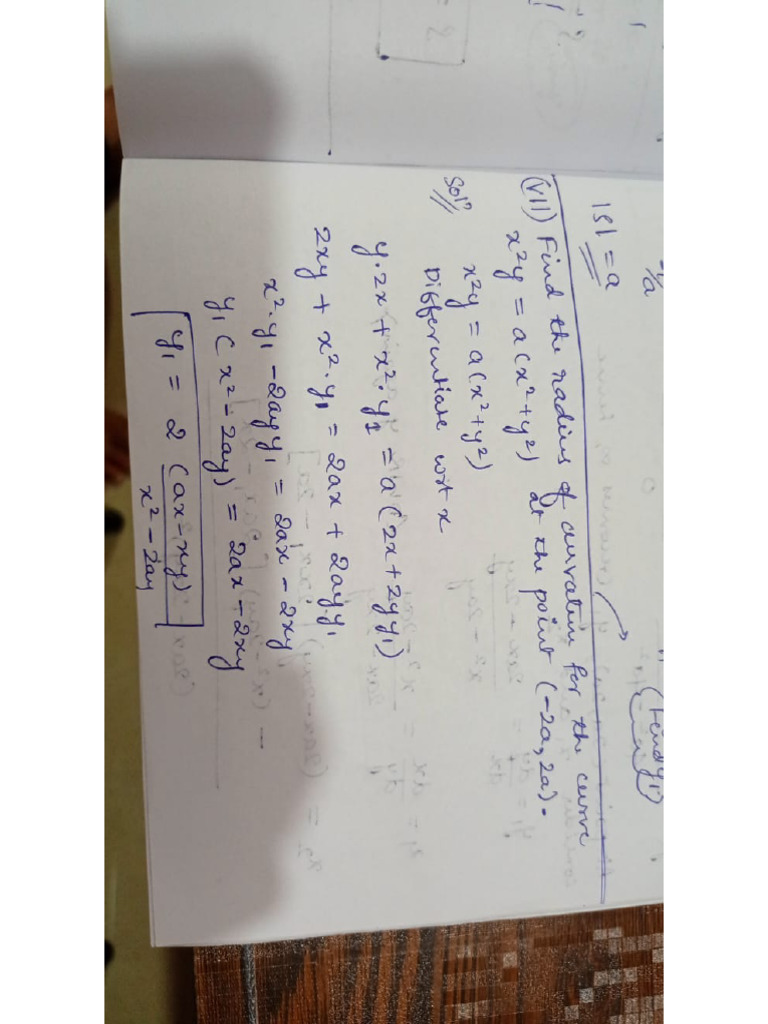 = 2
-1/a
|ρ| = a
(Find y₁)
(VII) Find the radius of curvature for the curve
x²y = a(x²+y²) at the point (-2a, 2a).
Solⁿ x²y = a(x²+y²)
Differentiate wrt x
y.2x + x². y1 = a(2x + 2yy₁)
2xy + x². y₁ = 2ax + 2ayy₁
x². y₁ - 2ayy₁ = 2ax - 2xy
y₁ (x² - 2ay) = 2ax - 2xy
y₁ = 2 (ax - xy) / x² - 2ay